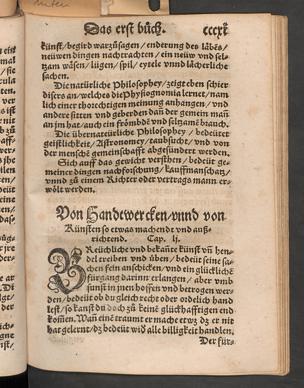 Das erst büch. cccxl
künst/begird warzůsagen/enderung des läbēs/
neüwen dingen nachtrachten/ein neüw vnd sel-
tzam wäsen/lügen/spil/eytele vnnd lächerliche
sachen.
Die natürliche Philosophey/zeigt eben schier
disers an/welches die Physiognomia lernet/nam
lich einer thorechtigen meinung anhangen/vnd
andere sitten vnd geberden dan der gemein man
an jm hat/auch ein frömbde vnd selzame bianch.
Die übernatürliche Philosophey/bedeütet
geistlichkeit/Astronomey/taubsucht/vnd von
der menschē gemeinschafft abgesündert werden.
Sich auff das gewicht versthen/bedeüt ge-
meiner dingen nachforschung/kauffmanschatz/
vnnd zů einen Richter oder vertrags mann er-
wölt werden.
Von Handtwercken/vnnd von
Künsten so etwas machendt vnd auß-
richtend. Cap. lj.
Breüchliche vnd bekāte künst vñ hen-
del treiben vnd üben/bedeüt seine sa-
chen fein anschicken/vnd ein glückliche
fürgang darinn erlangen/aber vmb
sunst in jnen hoffen vnd betrogen wer-
den/bedeüt ob du gleich recht oder ordelich hand
lest/so kanst du doch zů keine glückhafftigen end
kom̄en. Wañ eine traumt er mache etwz dz er nit
hat gelernt/dz bedeüt wid alle billigkeit handlen.
Der für-